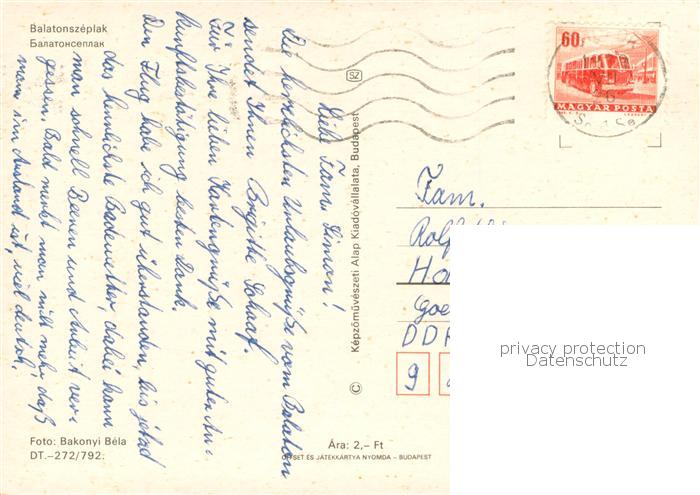 Balatonszéplak
Балатонсеплак
Lieb. Fam. Simon!
Die herzlichsten Urlaubsgrüße vom Balaton
sendet Ihnen Brigitte
Für Ihre lieben Kartengrüße mit guter An-
kunftsbestätigung besten Dank.
Den Flug habe ich gut überstanden, bis jetzt
das herrlichste Badewetter, dabei kann
man schnell Beeren und Arbeit ver-
gessen. Bald merkt man nicht mehr, daß
man im Ausland ist, viel deutsch.
Foto: Bakonyi Béla
DT.–272/792.
SZ
© Képzőművészeti Alap Kiadóvállalata, Budapest
Ára: 2,– Ft
OFFSET ÉS JÁTÉKKÁRTYA NYOMDA – BUDAPEST
60f
MAGYAR POSTA
Fam.
Rolf
Ho
Goe
DDR
9
privacy protection
Datenschutz